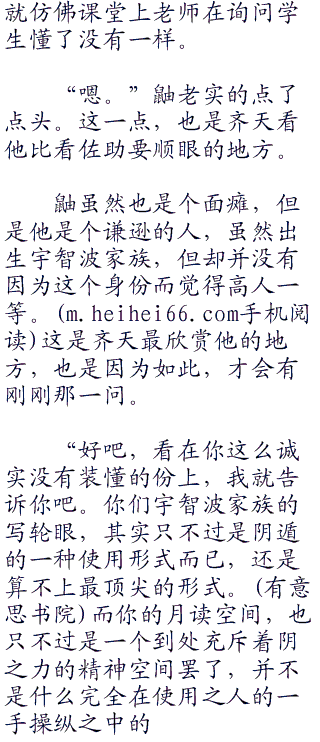 就仿佛课堂上老师在询问学
生懂了没有一样。
“嗯。”鼬老实的点了
点头。这一点，也是齐天看
他比看佐助要顺眼的地方。
鼬虽然也是个面瘫，但
是他是个谦逊的人，虽然出
生宇智波家族，但却并没有
因为这个身份而觉得高人一
等。(m.heihei66.com手机阅
读)这是齐天最欣赏他的地
方，也是因为如此，才会有
刚刚那一问。
“好吧，看在你这么诚
实没有装懂的份上，我就告
诉你吧。你们宇智波家族的
写轮眼，其实只不过是阴遁
的一种使用形式而已，还是
算不上最顶尖的形式。(有意
思书院)而你的月读空间，也
只不过是一个到处充斥着阴
之力的精神空间罢了，并不
是什么完全在使用之人的一
手操纵之中的